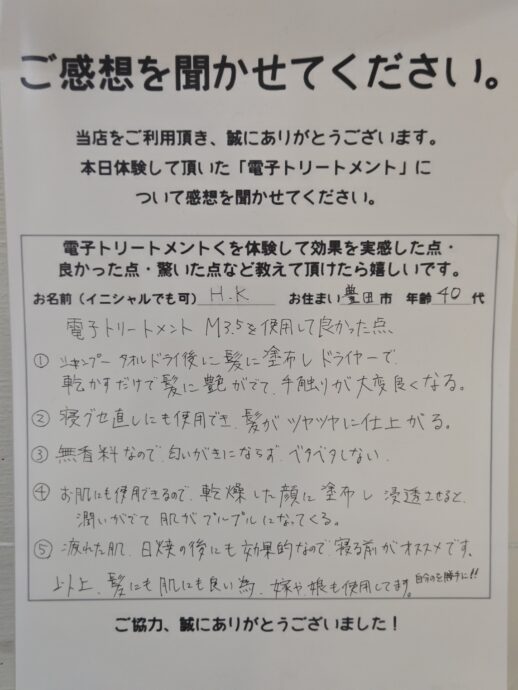 ご感想を聞かせてください。
当店をご利用頂き、誠にありがとうございます。
本日体験して頂いた「電子トリートメント」に
ついて感想を聞かせてください。
電子トリートメントくを体験して効果を実感した点・
良かった点・驚いた点など教えて頂けたら嬉しいです。
お名前（イニシャルでも可） H.K お住まい 豊田 市 年齢 40 代
電子トリートメント M3.5を使用して良かった点、
① シャンプー タオルドライ後に髪に塗布しドライヤーで、
乾かすだけで髪に艶がでて、手触りが大変良くなる。
② 寝グセ直しにも使用でき、髪がツヤツヤに仕上がる。
③ 無香料なので、匂いがきにならず、ベタベタしない。
④ お肌にも使用できるので、乾燥した顔に塗布し 浸透させると、
潤いがでて肌がプルプルになってくる。
⑤ 疲れた肌、日焼の後にも効果的なので、寝る前がオススメです、
以上、髪にも肌にも良い為、嫁や娘も使用してます。自分のを勝手に!!
ご協力、誠にありがとうございました！